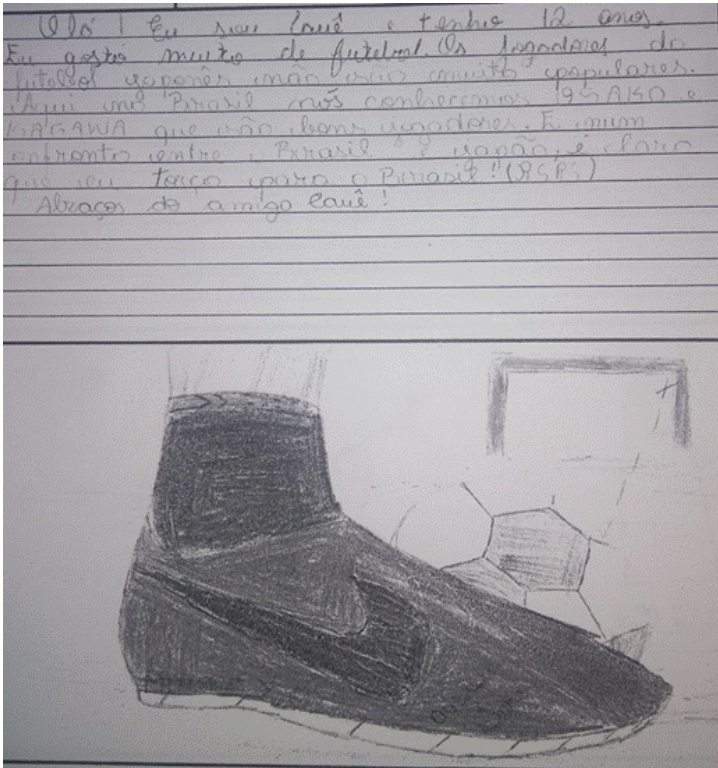 Olá! Eu sou Cauê e tenho 12 anos.
Eu gosto muito de futebol. Os jogadores do
futebol japonês não são muito populares.
Aqui no Brasil nós conhecemos OSAKO e
KAGAWA que são bons jogadores. E num
confronto entre Brasil e Japão, é claro
que eu torço para o Brasil! (RSRS)
Abraços do amigo Cauê!